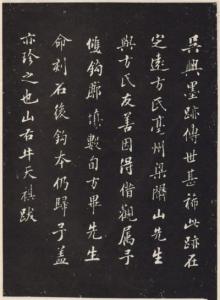 吳興墨跡傳世甚稀此跡在
定遠方氏亳州梁際山先生
與方氏友善因得借觀属予
雙鈎廓填數旬方畢先生
命刻石後鈎本仍歸予蓋
亦珍之也山右牛天祺跋